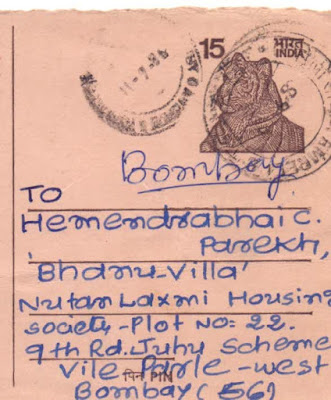 15 भारत
INDIA
11-7-86
AMRELI
Bombay
TO
Hemendrabhai C.
Parekh,
'Bhanu-Villa'
Nutan Laxmi Housing
society-Plot No: 22.
9th Rd. Juhu Scheme
Vile Parle-west
पिन PIN
Bombay (56)